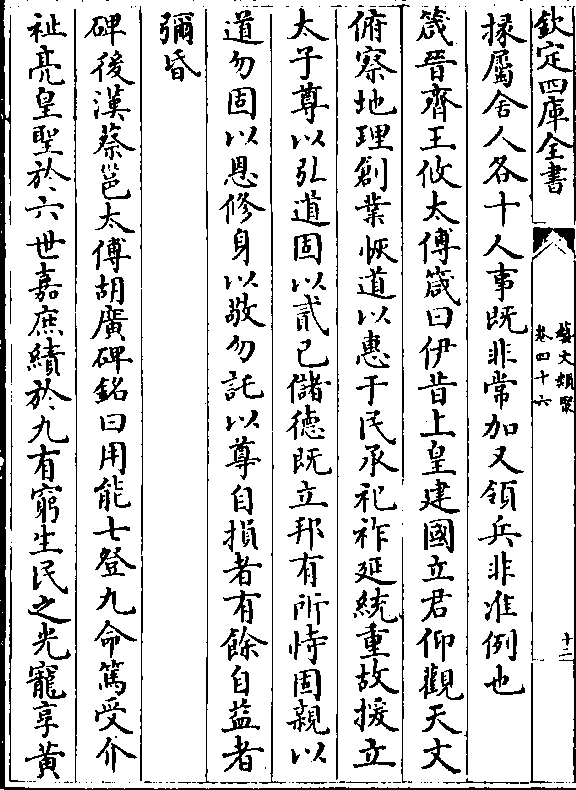 欽定四庫全書
藝文類聚
卷四十六
十二
掾屬舍人各十人事既非常加又領兵非准例也
箴晉齊王攸太傅箴曰伊昔上皇建國立君仰觀天文
俯察地理創業恢道以惠于民承祀祚延統重故援立
太子尊以弘道固以貳己儲德既立邦有所恃固親以
道勿固以恩修身以敬勿託以尊自損者有餘自益者
彌昏
碑後漢蔡邕太傅胡廣碑銘曰用能七登九命篤受介
祉亮皇聖於六世嘉庶績於九有窮生民之光寵享黃